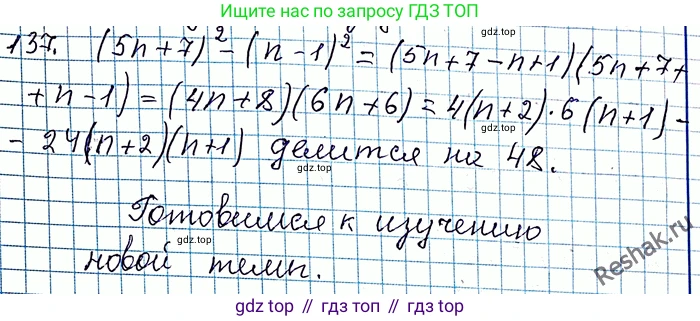 Ищите нас по запросу ГДЗ ТОП
137. (5n+7)² - (n-1)² = (5n+7-n+1)(5n+7+
+n-1) = (4n+8)(6n+6) = 4(n+2)·6(n+1) -
- 24(n+2)(n+1) делится на 48.
gdz.top
gdz.top
gdz.top
Готовимся к изучению
gdz.top
новой темы.
Reshak.ru
gdz top // гдз топ // gdz top // гдз топ // gdz top